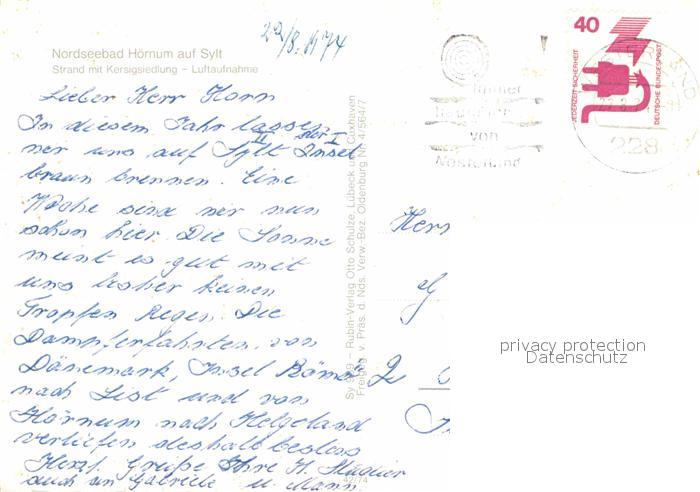 22/8. 1974
Nordseebad Hörnum auf Sylt
Strand mit Kersigsiedlung – Luftaufnahme
Lieber Herr Horn
In diesem Jahr lassen
wir uns auf Sylt Insel
braun brennen. Eine
Woche sind wir nun
schon hier. Die Sonne
meint es gut mit
uns bisher keinen
Tropfen Regen. Die
Dampferfahrten, von
Dänemark, Insel Römö
nach List und von
Hörnum nach Helgoland
verliefen deshalb bestens
Herzl. Grüße Ihre H.
auch an Gabriele u. Mann.
42/74
Sy 999 – Rubin-Verlag Otto Schulze, Lübeck und Cuxhaven
Freigeg. v. Präs. d. Nds. Verw.-Bez. Oldenburg Nr. 4564/7
40
JEDERZEIT SICHERHEIT
DEUTSCHE BUNDESPOST
von
228
Herr
privacy protection
Datenschutz